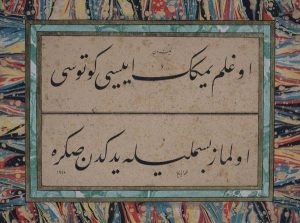 اوغلم يمكك اييسی كوتوسی
اولماز بسمليله يدكدن صكره